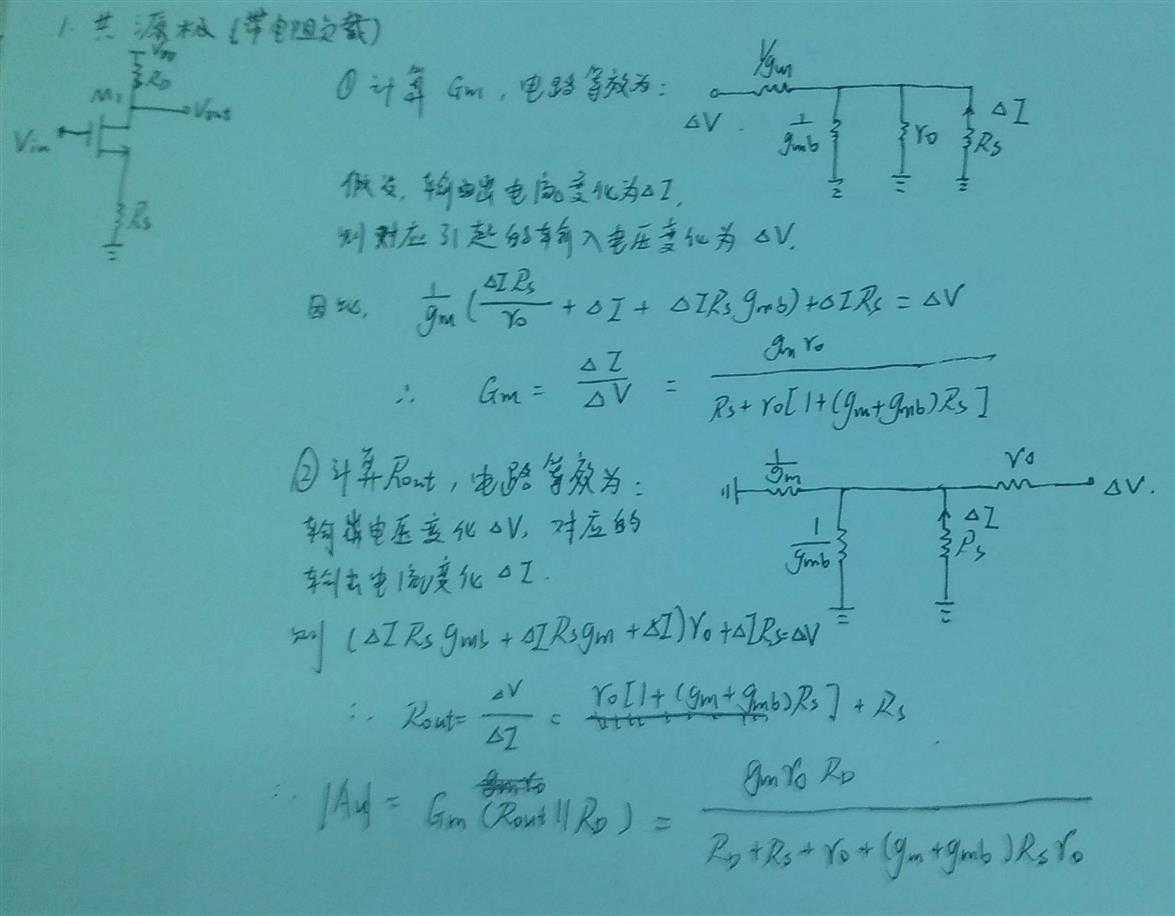 1. 共源极(带电阻负载)
VDD
RD
M1
Vout
Vin
RS
① 计算 Gm, 电路等效为:
1/gm
ΔV
1/gmb
r0
ΔI
RS
假设, 输出电流变化为ΔI,
则对应引起的输入电压变化为 ΔV.
因此, 1/gm (ΔI RS/r0 + ΔI + ΔI RS gmb) + ΔI RS = ΔV
∴ Gm = ΔI/ΔV = gm r0 / RS + r0[1+(gm+gmb)RS]
② 计算Rout, 电路等效为:
1/gm
r0
ΔV.
1/gmb
ΔI
RS
输出电压变化 ΔV, 对应的
输出电流变化 ΔI.
则 (ΔI RS gmb + ΔI RS gm + ΔI) r0 + ΔI RS = ΔV
∴ Rout = ΔV/ΔI = r0[1+(gm+gmb)RS] + RS
∴ |Au| = Gm (Rout || RD) = gm r0 RD / RD + RS + r0 + (gm+gmb) RS r0